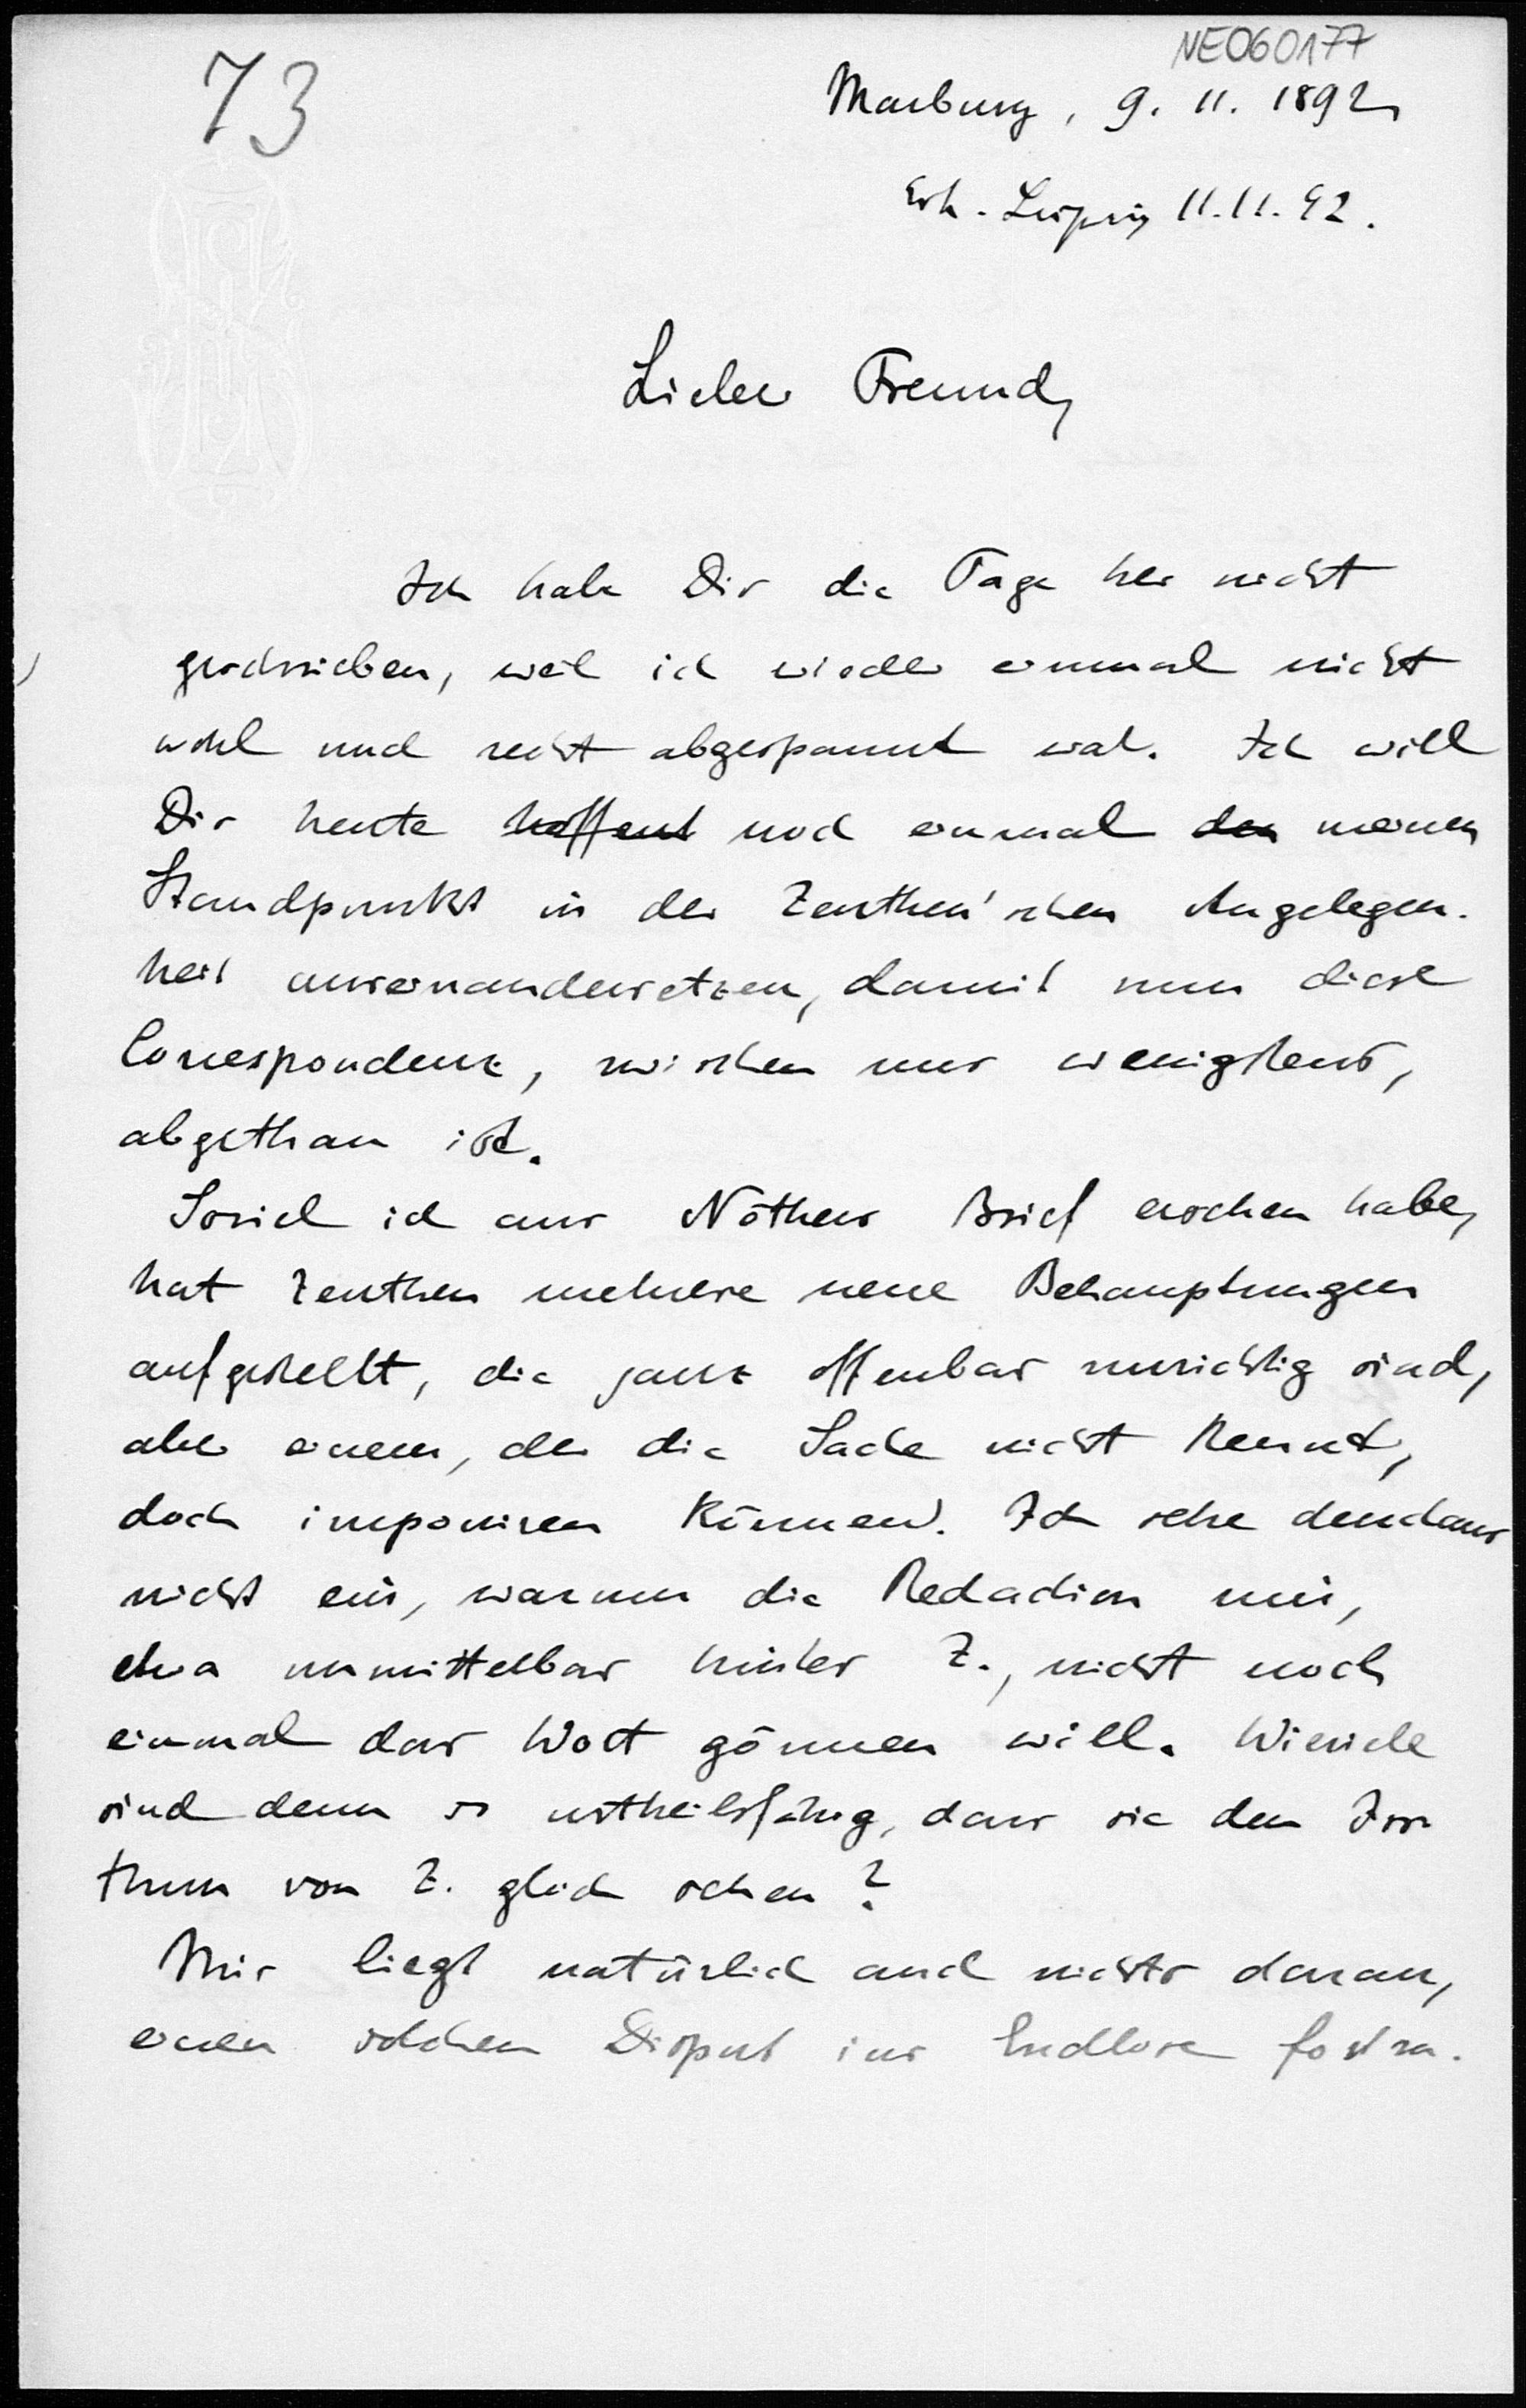 NEO60177
73
Marburg, 9. 11. 1892
Erh. Leipzig 11.11.92.
Lieber Freund,
Ich habe Dir die Tage her nicht
geschrieben, weil ich wieder einmal nicht
wohl und recht abgespannt war. Ich will
Dir heute hoffent noch einmal den meinen
Standpunkt in der Zeuthen'schen Angelegen-
heit auseinandersetzen, damit nun diese
Correspondenz, zwischen uns wenigstens,
abgethan ist.
Soviel ich aus Nöthers Brief ersehen habe,
hat Zeuthen mehrere neue Behauptungen
aufgestellt, die ganz offenbar unrichtig sind,
aber einem, der die Sache nicht kennt,
doch imponiren können. Ich sehe durchaus
nicht ein, warum die Redaction mir,
etwa unmittelbar hinter Z., nicht noch
einmal das Wort gönnen will. Wieviele
sind denn so urtheilsfähig, dass sie den Irr-
thum von Z. gleich sehen?
Mir liegt natürlich auch nichts daran,
einen solchen Disput ins Endlose fortzu-